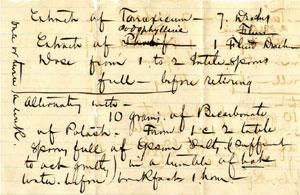 Extract of Taraxicum — 7. Drachs
Podophyllin Fluid
Extract of — 1 Fluid Drach
Dose from 1 to 2 table spoons
full — before retiring
Alternating with —
10 grains of Bicarbonate
of Potash. From 1 to 2 table
spoons full of Epsom Salts (sufficient
to act gently) in a tumbler of
water. before breakfast 1 hour